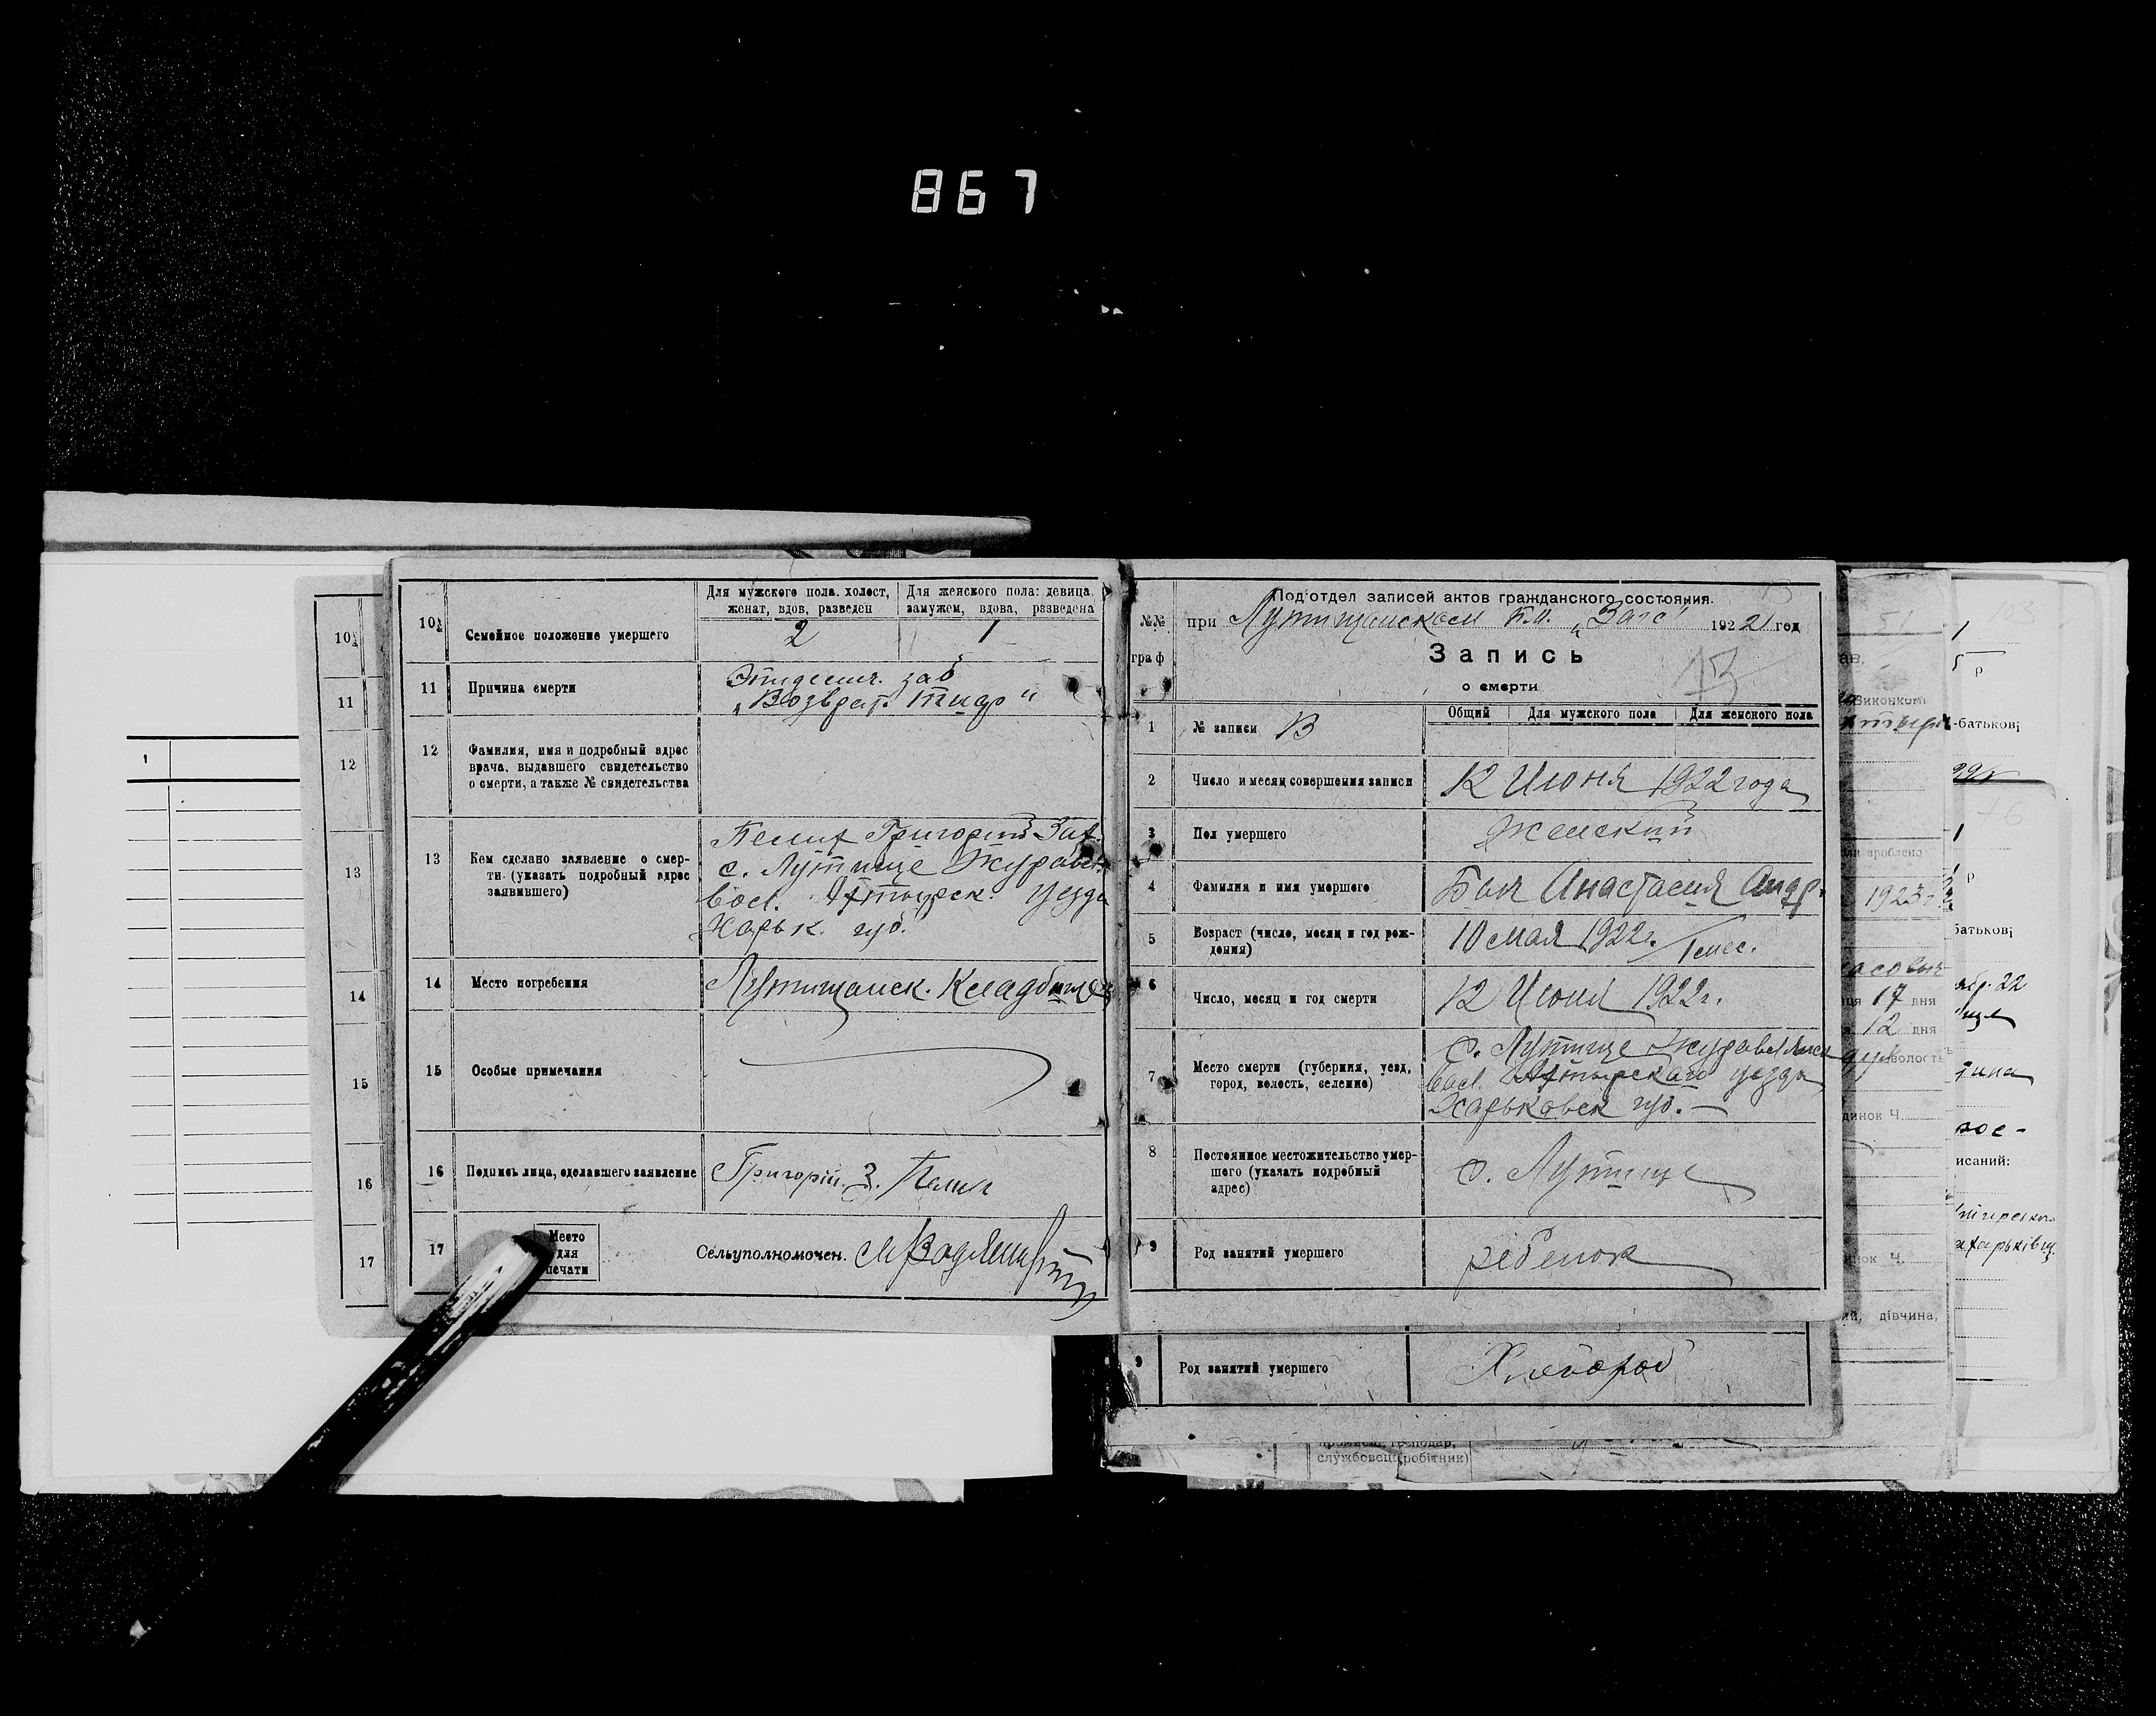 867
10½
11
12
13
14
15
16
17
1
10½
Семейное положение умершего
Для мужского пола: холост, женат, вдов, разведен
Для женского пола: девица, замужем, вдова, разведена
2
1
11
Причина смерти
Эпидемич. заб
„Возврат. тиф"
12
Фамилия, имя и подробный адрес
врача, выдавшего свидетельство
о смерти, а также № свидетельства
13
Кем сделано заявление о смер-
ти (указать подробный адрес
заявившего)
Григорий
с. Лутище Журавен.
вол. Ахтырск. уезда
Харьк. губ.
14
Место погребения
Лутищанск. Кладбище
15
Особые примечания
16
Подпись лица, сделавшего заявление
Григорій. З.
17
Место
для
печати
Сельуполномочен.
13
Под'отдел записей актов гражданского состояния.
№№
граф
при Лутищанском п.о. „Загс" 1922 год
Запись
13
о смерти
1
№ записи 13
Общий
Для мужского пола
Для женского пола
2
Число и месяц совершения записи
12 Июня 1922 года
3
Пол умершего
Женский
4
Фамилия и имя умершего
Анастасия Андр.
5
Возраст (число, месяц и год рож-
дения)
10 мая 1922г. / 1 мес.
6
Число, месяц и год смерти
12 Июня 1922г.
7
Место смерти (губерния, уезд,
город, волость, селение)
с. Лутище
вол. Ахтырского уезда
Харьковск губ. —
8
Постоянное местожительство умер-
шего (указать подробный
адрес)
с. Лутище
9
Род занятий умершего
ребенок
9
Род занятий умершего
Хлебороб
господар,
службовець, робітник)
51
Виконком
зроблено
1923 г.
17 дня
12 дня
волость
динок Ч.
инок Ч.
ий, дівчина,
103
р
-батькові
76
р
батькові
22
исаний: